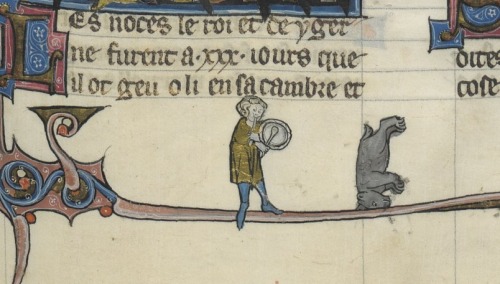 Les noces le roi et de yger
ne furent a · xxx · iours que
il ot geu o li en sa cambre et
dites
cose